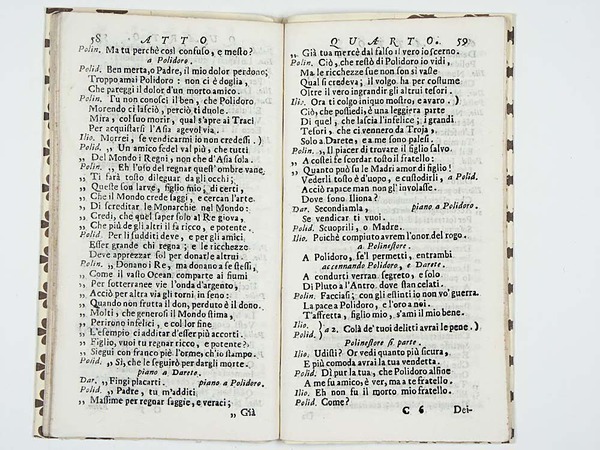 58 ATTO
Polin. Ma tu perchè così confuso, e mesto?
a Polidoro.
Polid. Ben merta, o Padre, il mio dolor perdono;
Troppo amai Polidoro: non ci è doglia,
Che pareggi il dolor d'un morto amico.
Polin. Tu non conosci il ben, che Polidoro
Morendo ci lasciò, perciò ti duole.
Mira, col suo morir, qual s'apre ai Traci
Per acquistarsi l'Asia agevol via.
Ilio. Morrei, se vendicarmi io non credessi.)
Polid. „ Un amico fedel val più, che tutti
„ Del Mondo i Regni, non che d'Asia sola.
Polin. „ Eh l'uso del regnar quest'ombre vane
„ Ti farà tosto dileguar da gli occhi;
„ Queste son larve, figlio mio, di certi,
„ Che il Mondo crede saggi, e cercan l'arte
„ Di screditar le Monarchie nel Mondo:
„ Credi, che quel saper solo al Re giova,
„ Che più de gli altri il fa ricco, e potente.
Polid. Per li sudditi deve, e per gli amici
Esser grande chi regna; e le ricchezze
Deve apprezzar sol per donarle altrui.
Polin. „ Donano i Re, ma donano a se stessi,
„ Come il vasto Ocean comparte ai fiumi
„ Per sotterranee vie l'onda d'argento,
„ Acciò per altra via gli torni in seno:
„ Quando non frutta il don, perduto è il dono.
„ Molti, che generosi il Mondo stima,
„ Perirono infelici, e col lor fine
„ L'esempio ci additar d'esser più accorti.
„ Figlio, vuoi tu regnar ricco, e potente?
„ Siegui con franco piè l'orme, ch'io stampo.
Polid. „ Sì, che le seguirò per dargli morte.
piano a Darete.
Dar. „ Fingi placarti. piano a Polidoro.
Polid. „ Padre, tu m'additi
„ Massime per regnar saggie, e veraci;
„ Già
QUARTO. 59
„ Già tua mercè dal falso il vero io scerno.
Polin. Ciò, che restò di Polidoro io vidi,
Ma le ricchezze sue non son sì vaste
Qual si credea; il volgo ha per costume
Oltre il vero ingrandir gli altrui tesori.
Ilio. Ora ti colgo iniquo mostro, e avaro.)
Ciò, che possiedi, è una leggiera parte
Di quel, che lascia l'infelice; i grandi
Tesori, che ci vennero da Troja,
Solo a Darete, e a me sono palesi.
Polin. „ Il piacer di trovare il figlio salvo
„ A costei fe scordar tosto il fratello:
„ Quanto può su le Madri amor di figlio!
Vederli tosto è d'uopo, e custodirli, a Polid.
Acciò rapace man non gl'involasse.
Dove sono Iliona?
Dar. Secondiamla, piano a Polidoro.
Se vendicar ti vuoi.
Polid. Scuoprili, o Madre.
Ilio. Poichè compiuto avrem l'onor del rogo
a Polinestore.
A Polidoro, se'l permetti, entrambi
accennando Polidoro, e Darete.
A condurti verran segreto, e solo
Di Pluto a l'Antro dove stan celati.
Polin. Facciasi; con gli estinti io non vo' guerra.
La pace a Polidoro, e l'oro a noi.
T'affretta, figlio mio, s'ami il mio bene.
Ilio. )
Polid. ) a 2. Colà de' tuoi delitti avrai le pene.)
Polinestore si parte.
Ilio. Udisti? Or vedi quanto più sicura,
E più comoda avrai la tua vendetta.
Polid. Di pur la tua, che Polidoro alfine
A me fu amico, è ver, ma a te fratello.
Ilio. Eh non fu il morto mio fratello.
Polid. Come?
C 6 Dei-